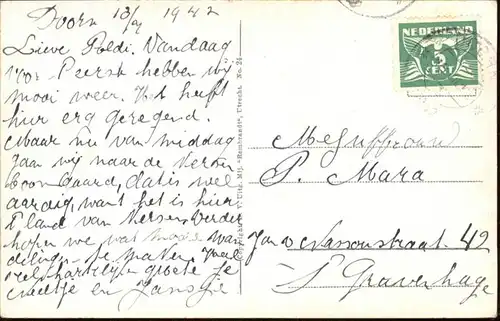 Doorn 13/9 1942
Lieve Poldi. Vandaag
voor 't eerst hebben wij
mooi weer. Het heeft
hier erg geregend.
Maar nu van middag
gaan wij naar de Kersen
boomgaard, dat is wel
aardig, want het is hier
't land van
hopen we wat mooie wan
delingen te maken. Veel
hartelijke groeten je
en Jansje
NEDERLAND
5
CENT
Mejuffrouw
P. Mara
Jan v. Nassaustraat 42
's Gravenhage
"Rembrandt", Utrecht No. 24